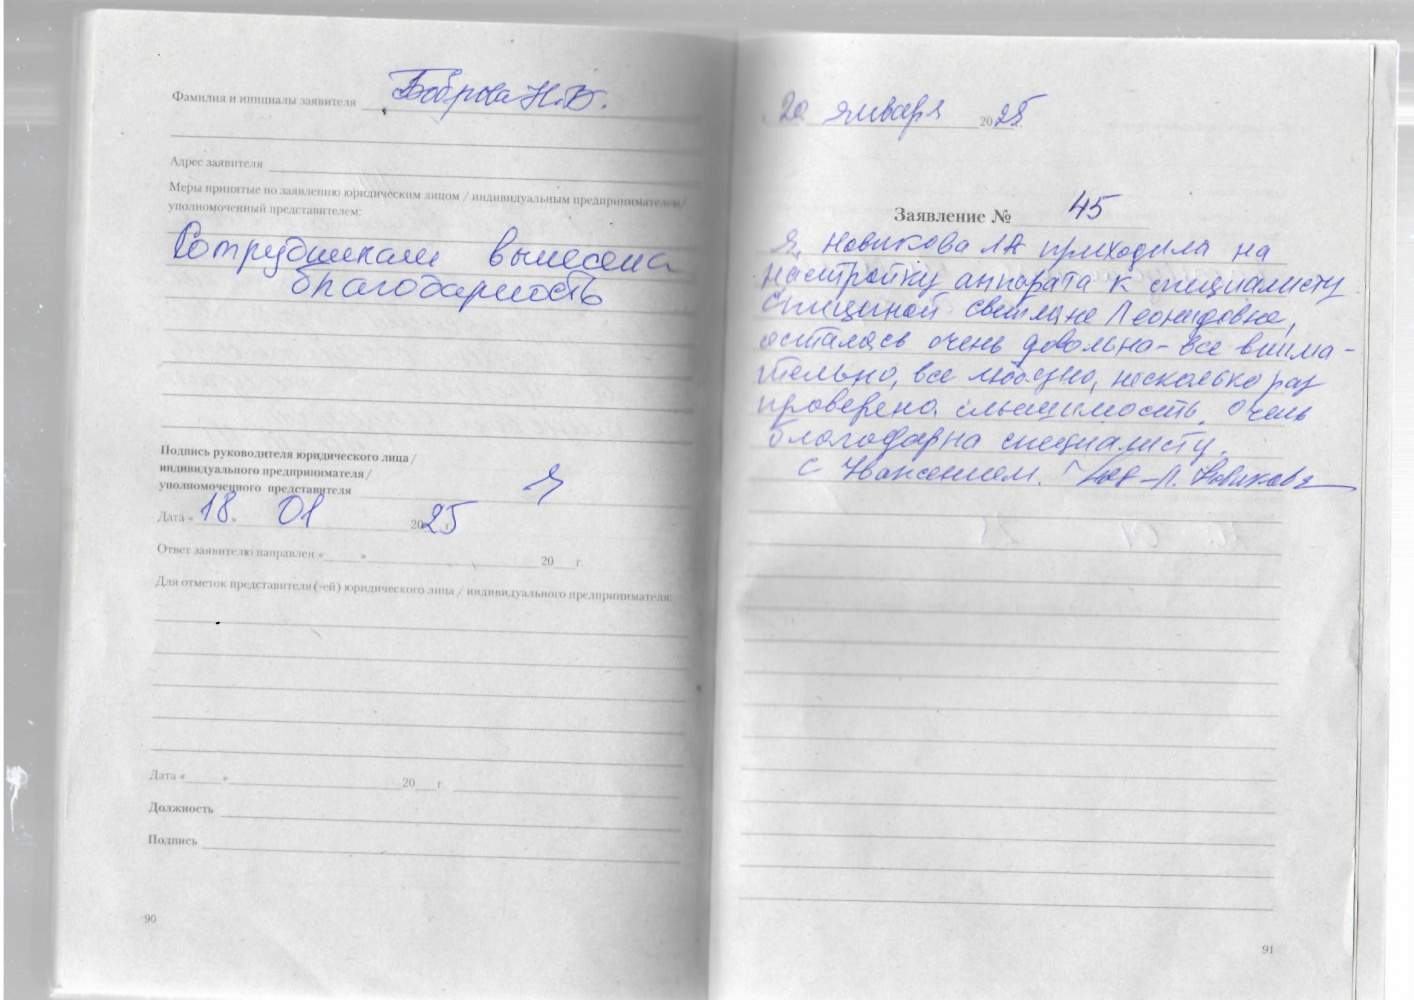 Фамилия и инициалы заявителя Боброва Н.В.
Адрес заявителя
Меры принятые по заявлению юридическим лицом / индивидуальным предпринимателем/
уполномоченный представителем:
Сотрудникам вынесена
благодарность
Подпись руководителя юридического лица /
индивидуального предпринимателя /
уполномоченного представителя
Дата « 18 » 01 2025 г.
Ответ заявителю направлен « » 20 г.
Для отметок представителя (-ей) юридического лица / индивидуального предпринимателя:
Дата « » 20 г.
Должность
Подпись
90
20 января 2025
Заявление № 45
Я, Новикова Л А приходила на
настройку аппарата к специалисту
Спициной Светлане Леонидовне,
осталась очень довольна - все внима-
тельно, все любезно, несколько раз
проверено слышимость. Очень
благодарна специалисту.
С Уважением. Л. Новикова
91